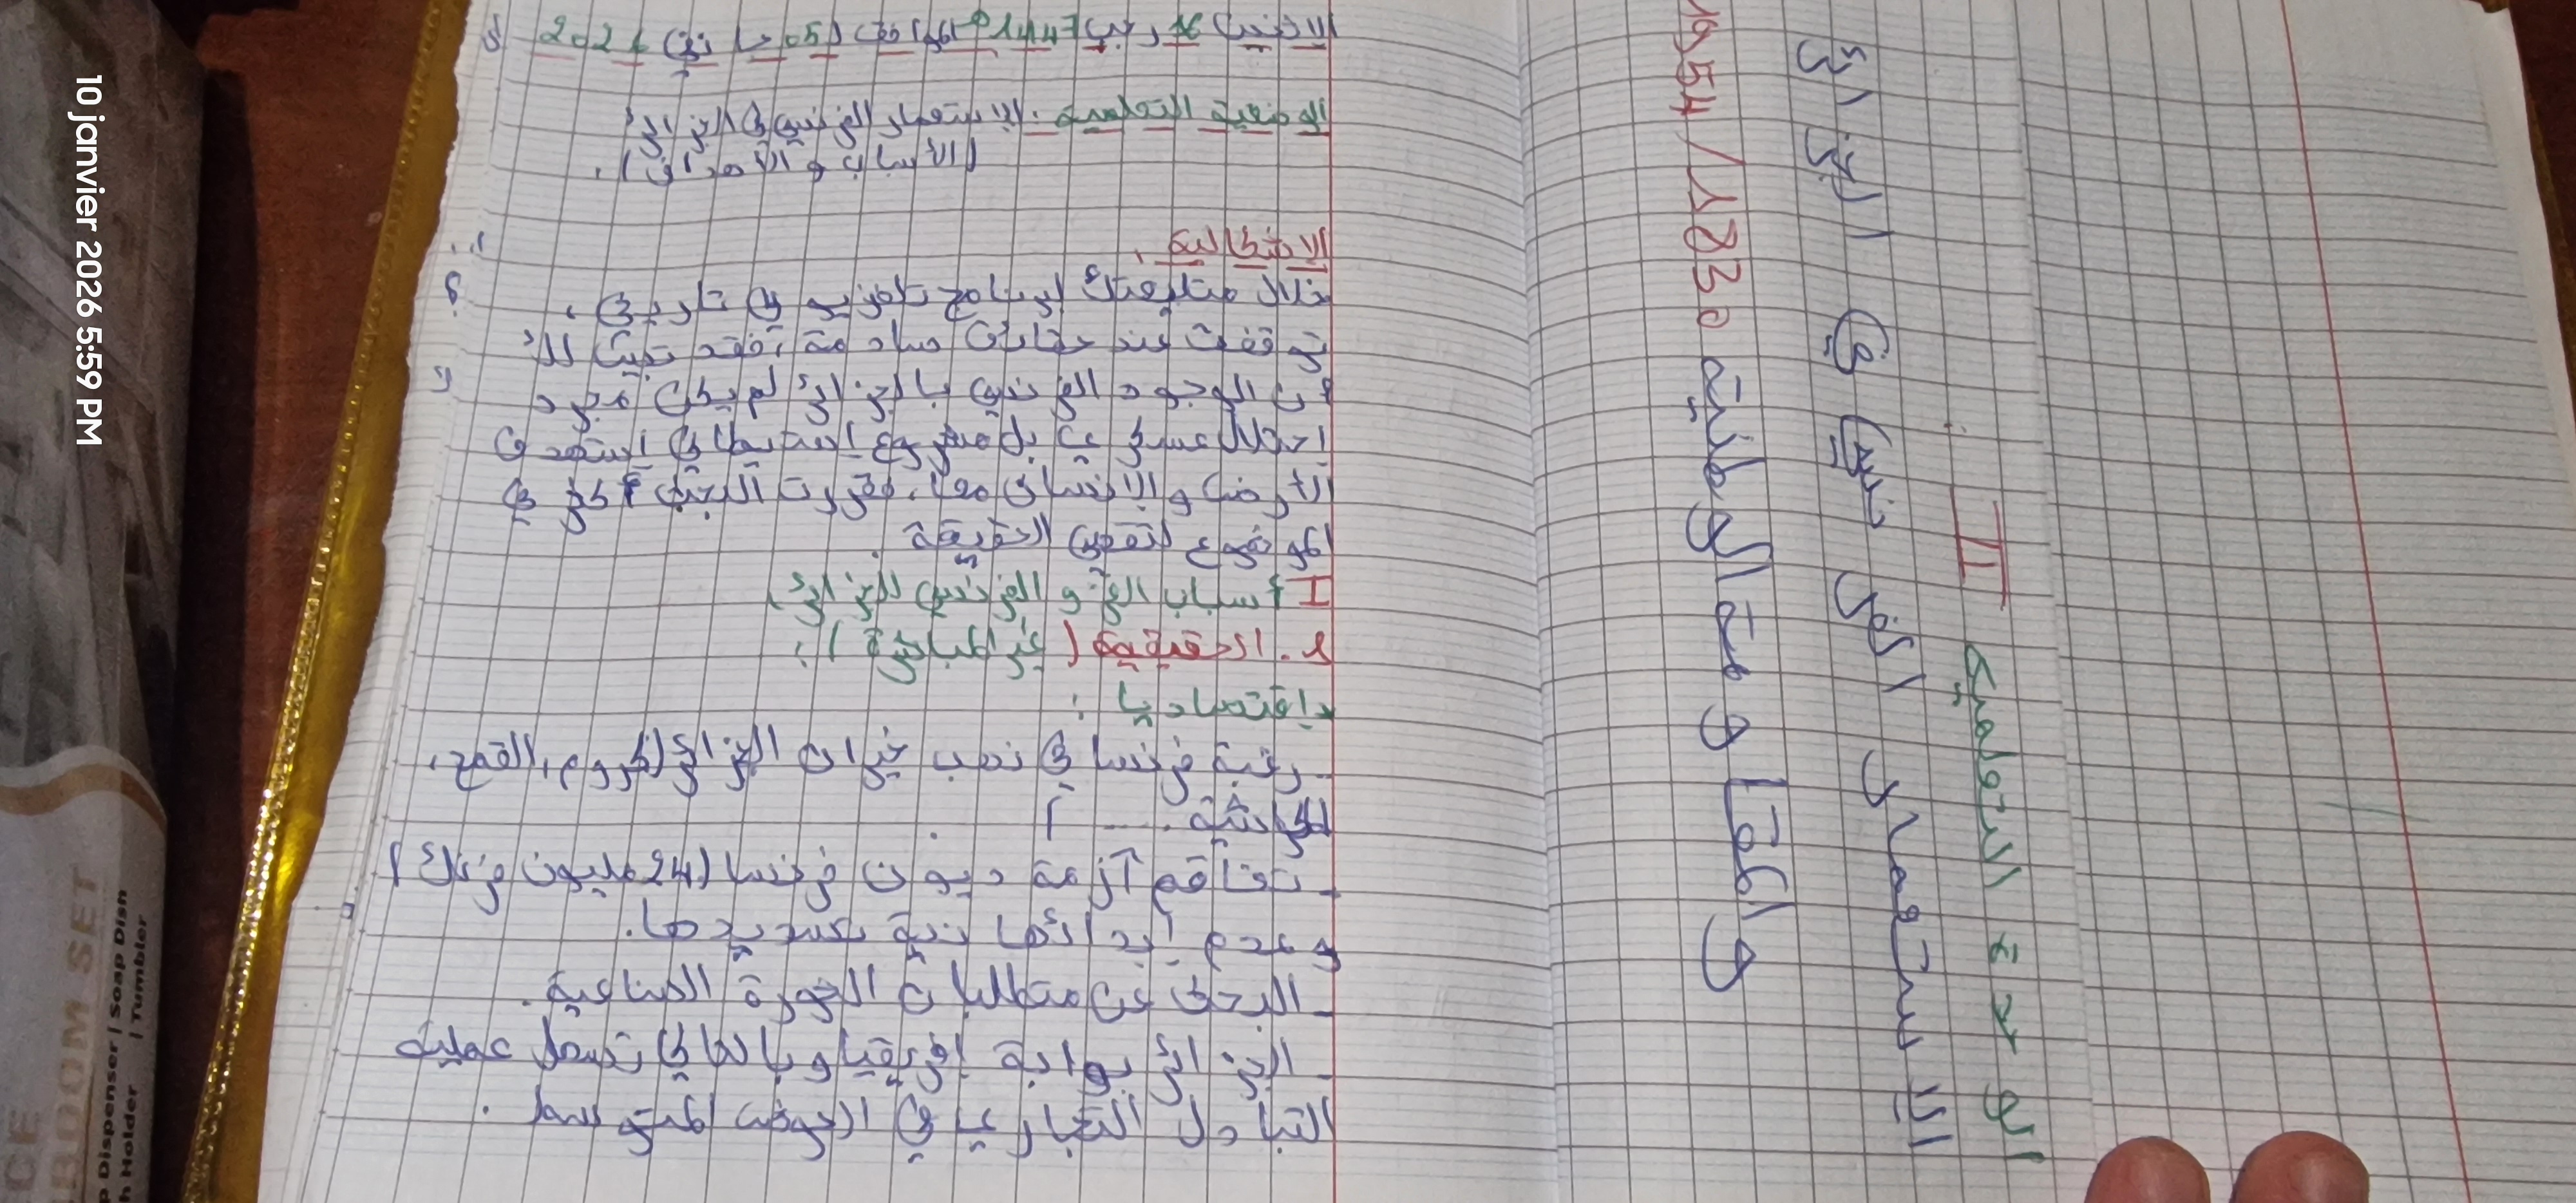 الاثنين 16 رجب 1447ه الموافق ل 05 جانفي 2026
الوضعية التعلمية: الاستعمار الفرنسي في الجزائر
(الأسباب والأهداف).
الإشكالية:
خلال متابعتك لبرنامج تلفزيوني تاريخي،
توقفت عند حقائق صادمة، فقد تبين لك
أن الوجود الفرنسي بالجزائر لم يكن مجرد
احتلال عسكري بل مشروع استيطاني استهدف
الأرض والإنسان معا. فقررت البحث أكثر في
الموضوع لتقصي الحقيقة.
I أسباب الغزو الفرنسي للجزائر:
1. الحقيقية (غير المباشرة):
اقتصاديا:
- رغبة فرنسا في نهب خيرات الجزائر (كروم، القمح،
الماشية .... )
- تفاقم أزمة ديون فرنسا (24 مليون فرنك)
وعدم إبدائها نية تسديدها.
- البحث عن متطلبات الثورة الصناعية.
- الجزائر بوابة إفريقيا وبالتالي تسهل عملية
التبادل التجاري في الحوض المتوسط.
الوضعية التعلمية II
الاستعمار الفرنسي في الجزائر
والمقاومة الوطنية 1830/1954
10 janvier 2026 5:59 PM
OOM SET
Dispenser | Soap Dish
Holder | Tumbler